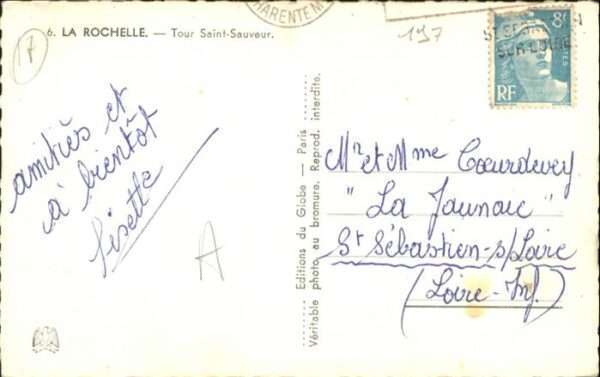 6. LA ROCHELLE. — Tour Saint-Sauveur.
CHARENTE M
197
8F
RF
amitiés et
à bientôt
Lisette
A
Editions du Globe — Paris
Véritable photo au bromure. Reprod. interdite.
Mr et Mme Coeurdevey
"La Jaunaie"
St Sébastien-s/Loire
(Loire-Inf.)